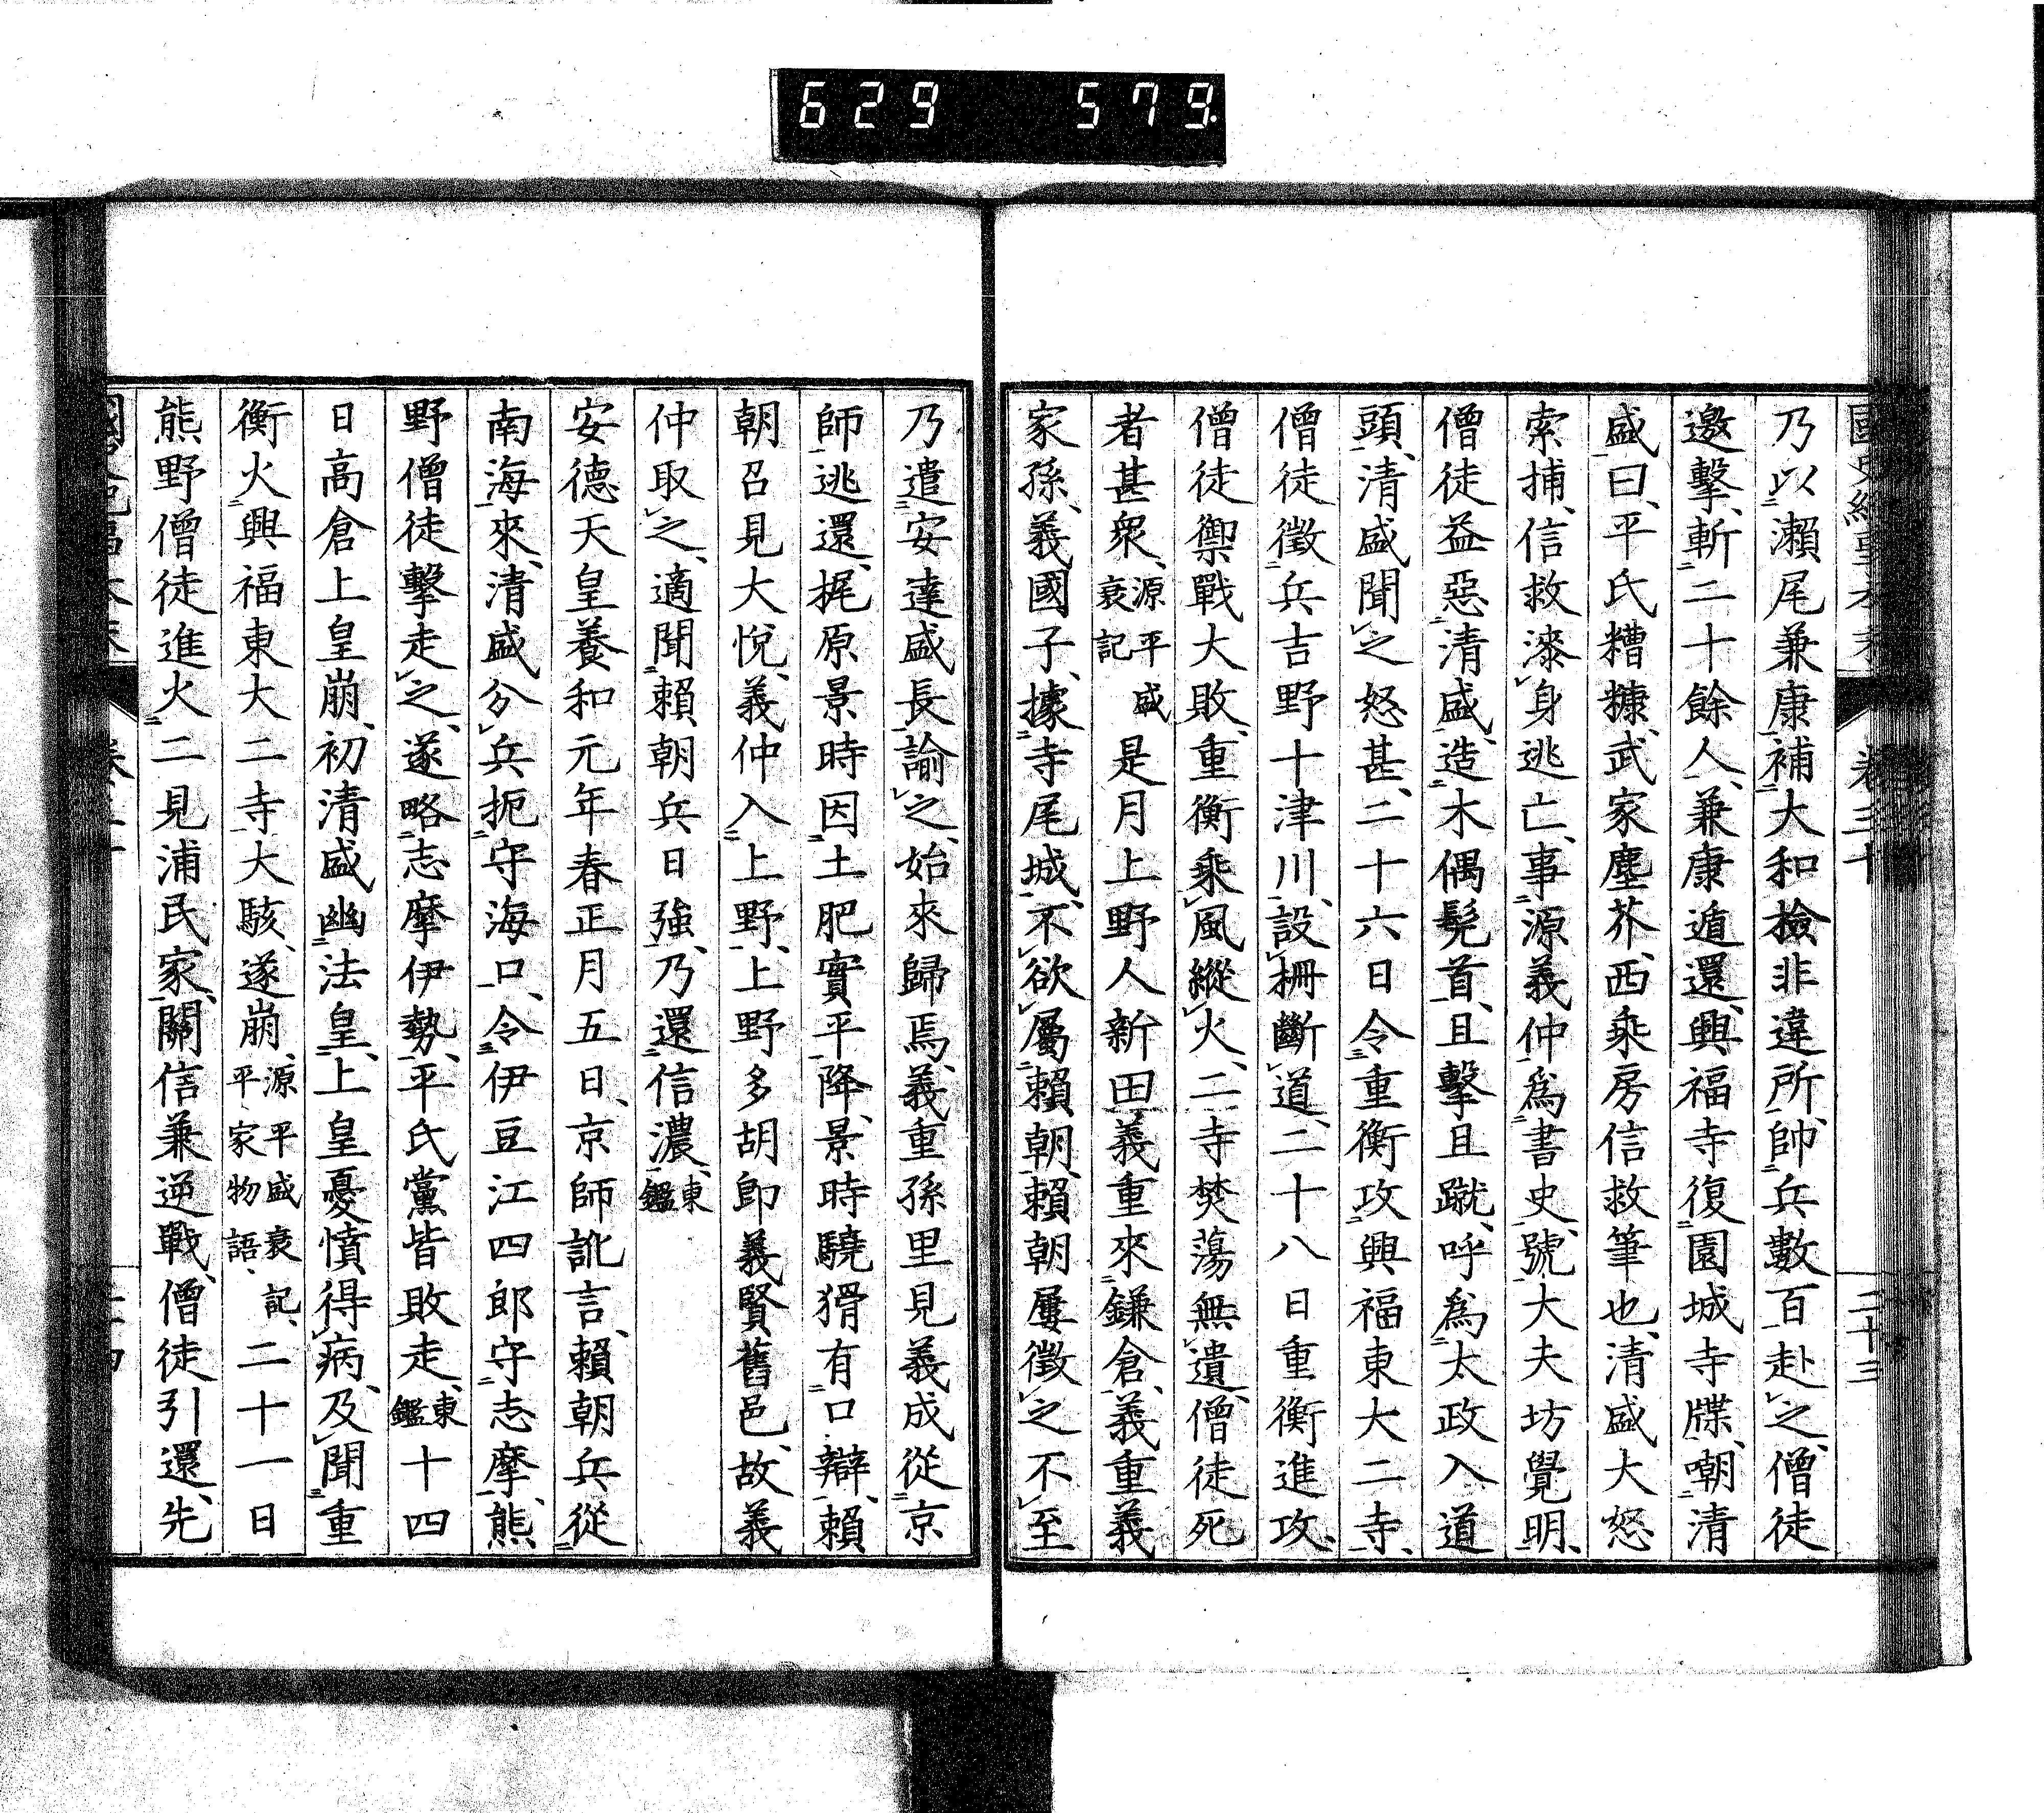 629 579.
乃以瀨尾兼康補大和檢非違所、帥兵數百赴之、僧徒
邀擊、斬二十餘人、兼康遁還、興福寺復園城寺牒、嘲清
盛曰、平氏糟糠、武家塵芥、西乘房信救筆也、清盛大怒
索捕、信救漆身逃亡、事源義仲爲書史、號大夫坊覺明、
僧徒益惡清盛、造木偶髡首、且擊且蹴、呼爲太政入道
頭、清盛聞之怒甚、二十六日令重衡攻興福東大二寺、
僧徒徵兵吉野十津川、設柵斷道、二十八日重衡進攻、
僧徒禦戰大敗、重衡乘風縱火、二寺焚蕩無遺、僧徒死
者甚衆、源平盛衰記是月上野人新田義重來鎌倉、義重義
家孫、義國子、據寺尾城、不欲屬賴朝、賴朝屢徵之不至
乃遣安達盛長諭之、始來歸焉、義重孫里見義成從京
師逃還、梶原景時因土肥實平降、景時驍猾有口辯、賴
朝召見大悅、義仲入上野、上野多胡郡義賢舊邑、故義
仲取之、適聞賴朝兵日強、乃還信濃、東鑑
安德天皇養和元年春正月五日、京師訛言、賴朝兵從
南海來、清盛分兵扼守海口、令伊豆江四郎守志摩、熊
野僧徒擊走之、遂略志摩伊勢、平氏黨皆敗走、東鑑十四
日高倉上皇崩、初清盛幽法皇、上皇憂憤得病、及聞重
衡火興福東大二寺、大駭、遂崩、源平盛衰記、平家物語、二十一日
熊野僧徒進火二見浦民家、關信兼逆戰、僧徒引還、先